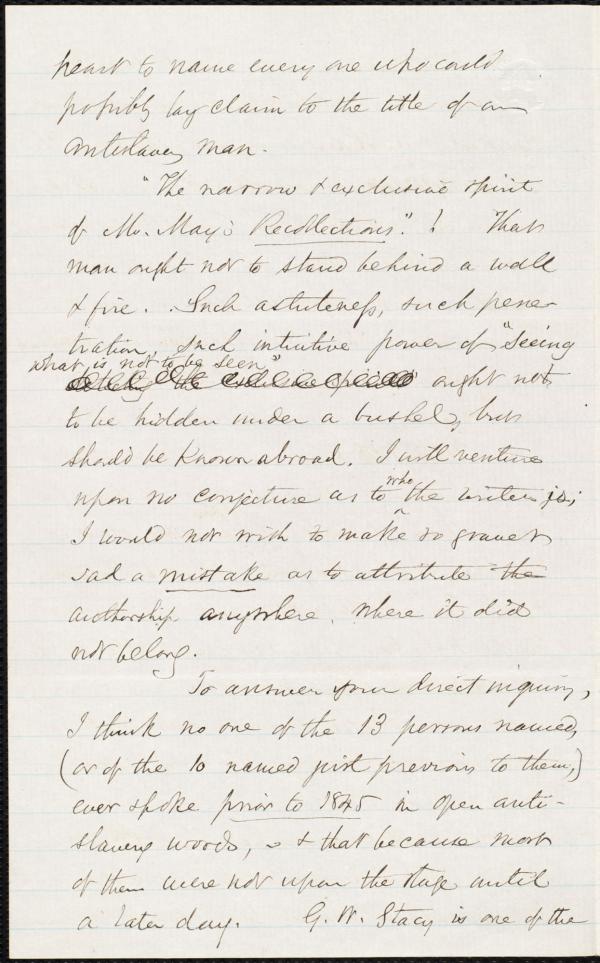 heart to name every one who could
possibly lay claim to the title of an
antislavery man.
"The narrow & exclusive spirit
of Mr. May's Recollections."! That
man ought not to stand behind a wall
& fire. Such astuteness, such pene-
tration, such intuitive power of "seeing
what is not to be seen"
ought not
to be hidden under a bushel, but
should be known abroad. I will venture
upon no conjecture as to who the writer is;
I would not wish to make so grave &
sad a mistake as to attribute the
authorship anywhere, where it did
not belong.
To answer your direct inquiry,
I think no one of the 13 persons named,
(or of the 10 named just previous to them,)
ever spoke prior to 1845 in open anti-
slavery words, & that because most
of them were not upon the stage until
a later day. G. W. Stacy is one of the